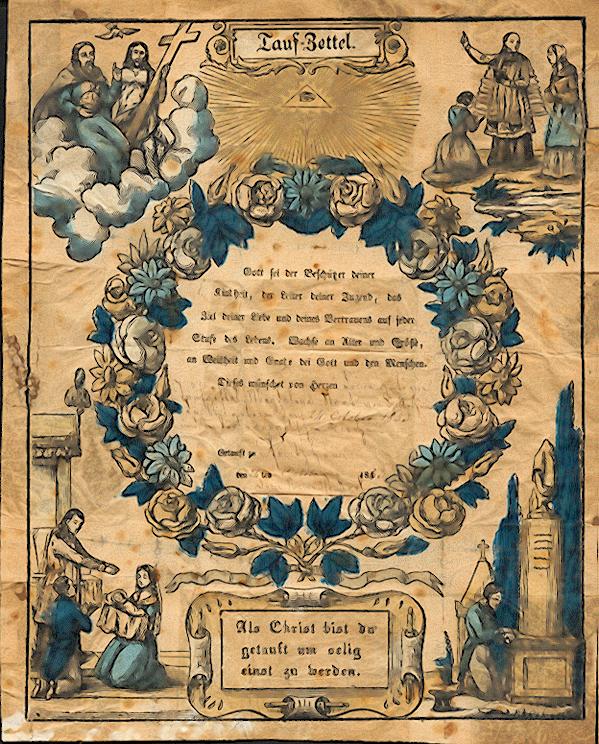 Tauf-Zettel.
Gott sei der Beschützer deiner
Kindheit, der Leiter deiner Jugend, das
Ziel deiner Liebe und deines Vertrauens auf jeder
Stufe des Lebens. Wachse an Alter und Größe,
an Weisheit und Gnade bei Gott und den Menschen.
Dieses wünschet von Herzen
Getauft zu
den
186
Als Christ bist du
getauft um selig
einst zu werden.